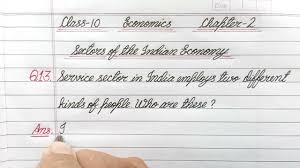 Class-10 Economics Chapter-2
Sectors of the Indian Economy
Q13. Service sector in India employs two different
kinds of people. Who are these?
Ans. I